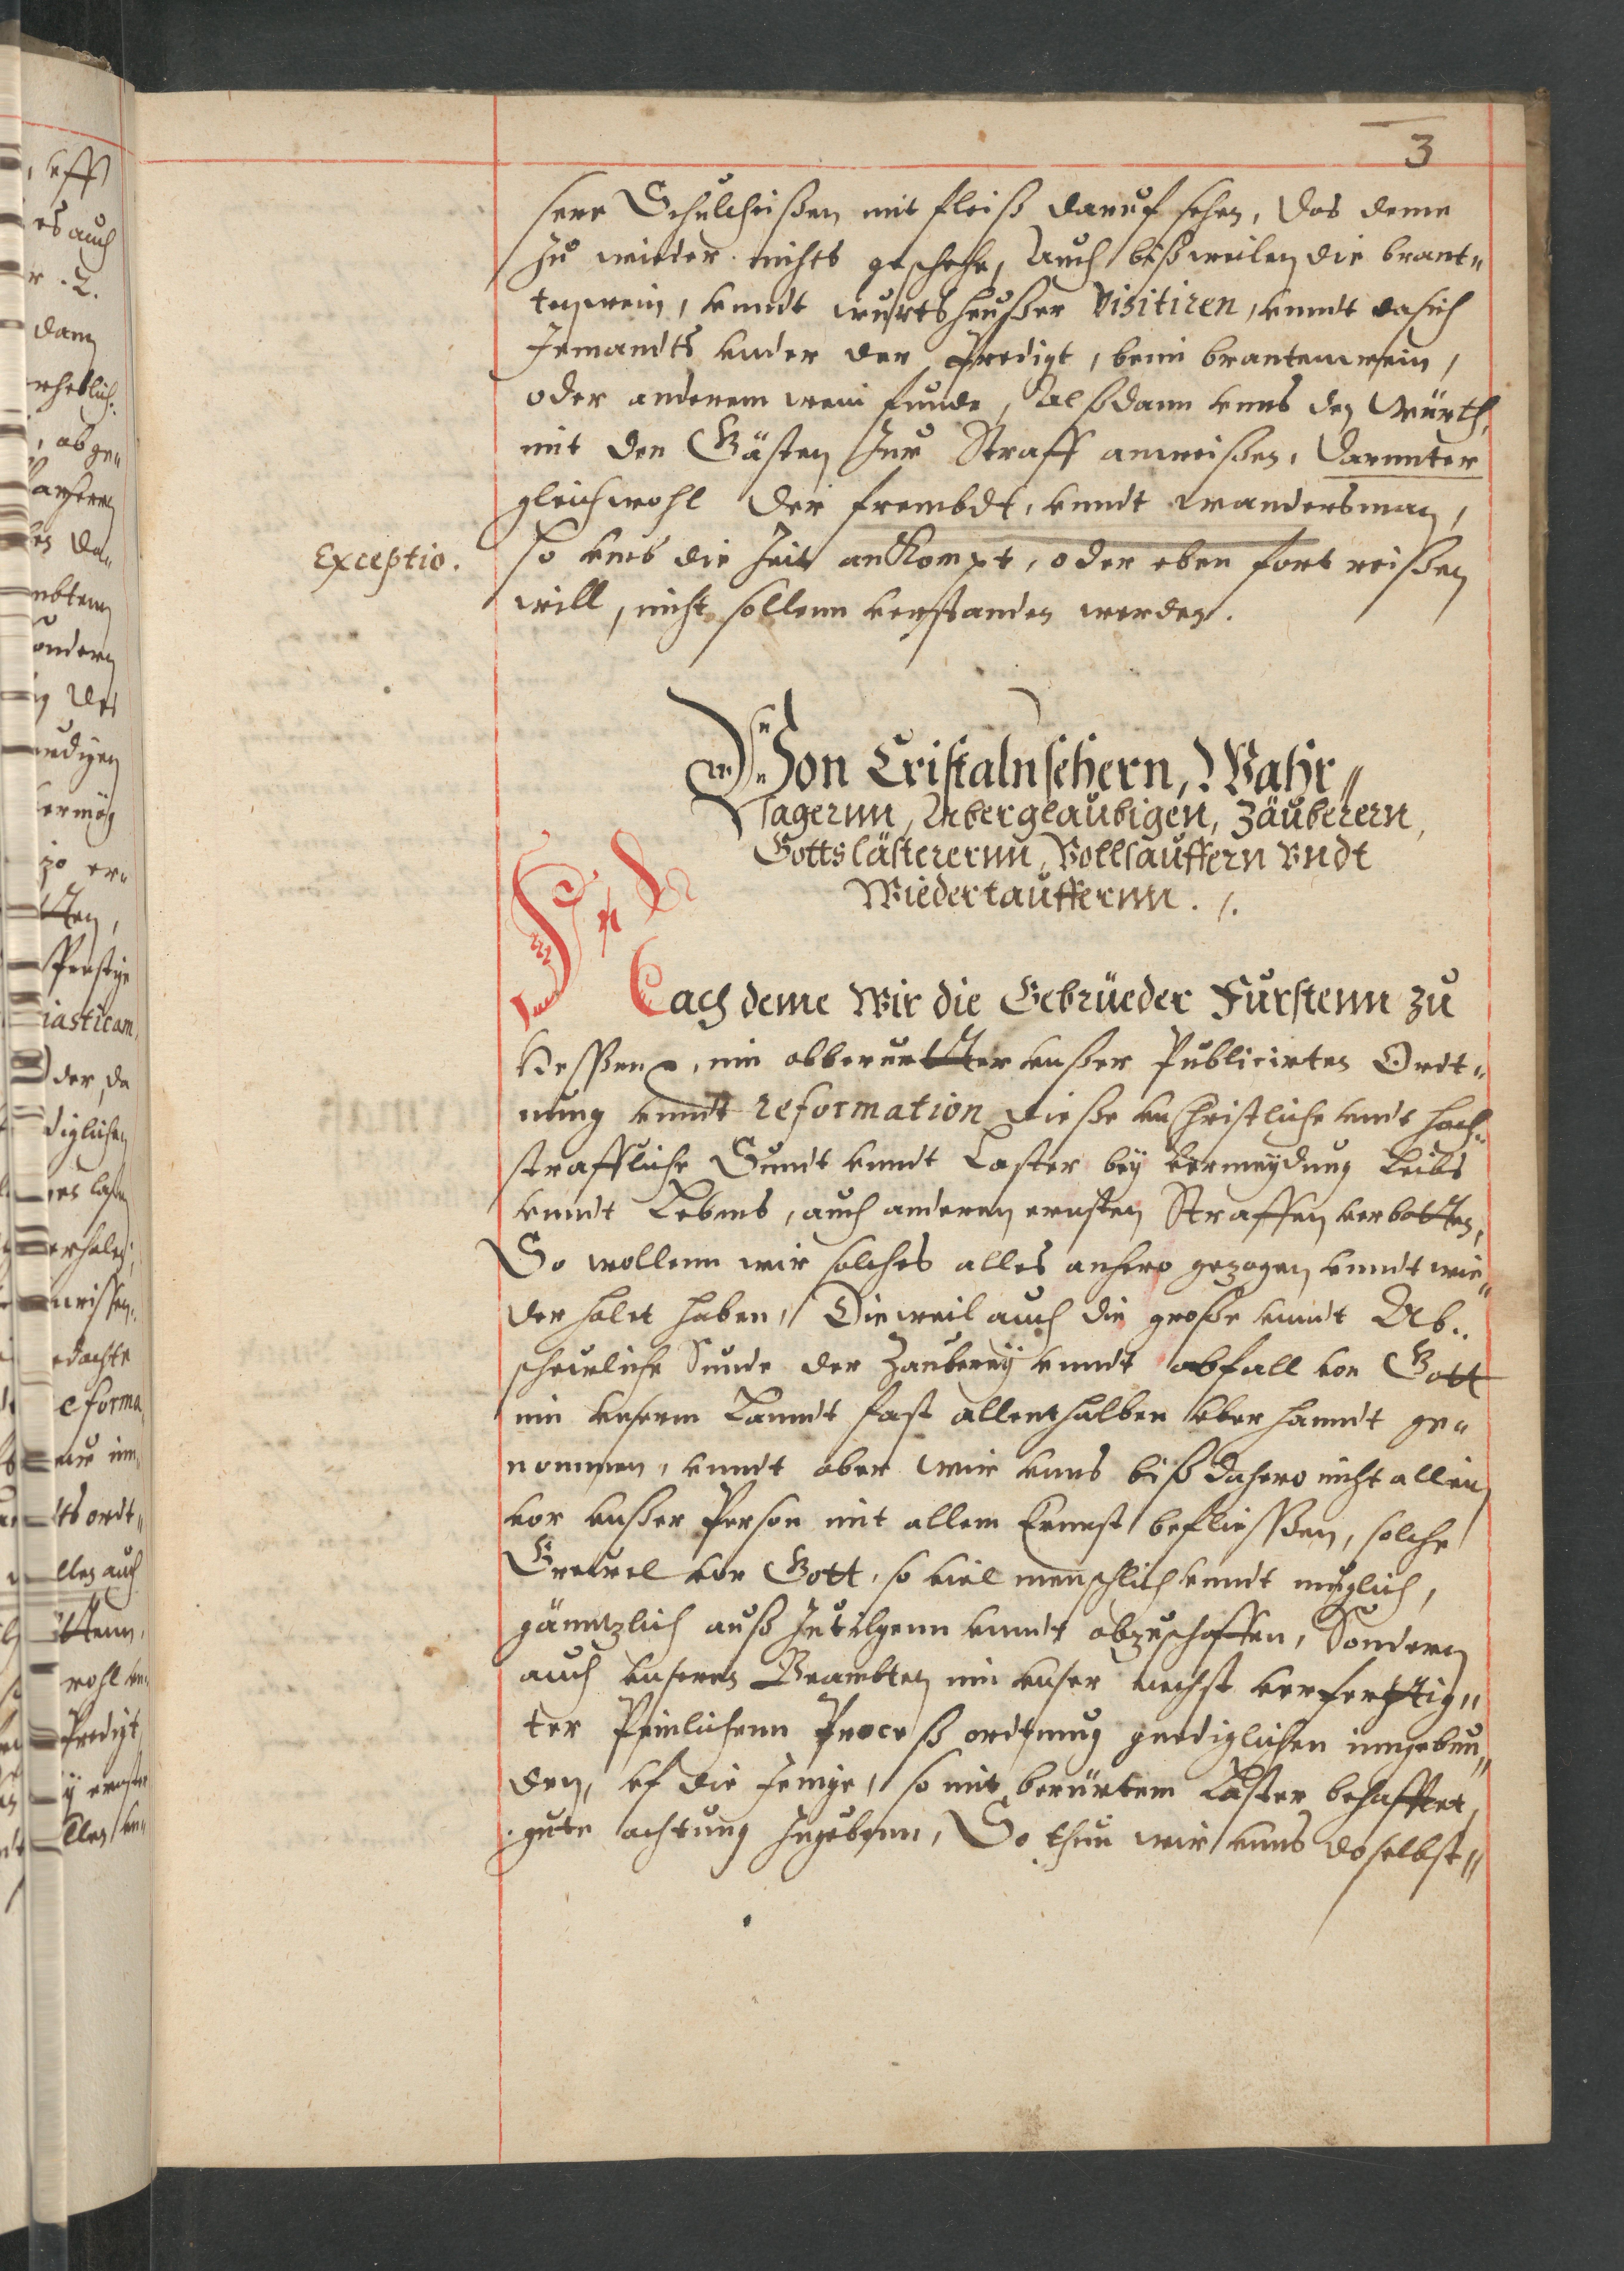 3
sere Schultheißen mit fleiß daruf sehen, das deme
zu wieder nichts geschehe, Auch bißweilen die brant„
tenwein, vnndt wurtsheußer Visitiren, vnndt da sich
Jemandts vnder der Predigt, beim brantenwein,
oder anderem wein funde, Alßdann vnns den Würth,
mit den Gästen zur Straff anweißen, Darunter
gleichwohl der frembdt, vnndt wandersman,
Exceptio.
so vmb die Zeit ankompt, oder eben fort reißen
will, nicht sollenn verstanden werden.
Von Cristalnsehern, Wahr„
sagernn, Aberglaubigen, Zäuberern,
Gottslästerernn, Vollsauffern Vndt
Wiedertauffernn. /.
Nach deme Wir die Gebrüeder Furstenn zu
Hessen, inn obberurtter vnßer Publicirten Ordt„
nung vnndt reformation diese vnchristliche vnndt hoch„
straffliche Sundt vnndt Laster bey vermeydung Leibs
vnndt Lebens, auch anderen ernsten Straffen verbotten,
So wollenn wir solches alles anhero gezogen vnndt wie„
derholet haben, Dieweil auch die große vnndt Ab„
scheuliche Sunde der Zauberey vnndt abfall von Gott
inn vnserm Lanndt fast allenthalben vberhanndt ge„
nommen, vnndt aber wir vnns biß dahero nicht allein
vor vnßer Person mit allem Ernnst befliessen, solche
Grewel vor Gott, so viel menschlich vnndt muglich,
gänntzlich außzutilgenn vnndt abzuschaffen, Sondern
auch vnseren Beambten inn vnser nechst verferttig„
ter Peinlichenn Proceß ordnung gnediglichen inngebun„
den, vf die Jenige, so mit berürtem Laster behafftet,
gute achtung zugebenn, So thun wir vnns doselbst„